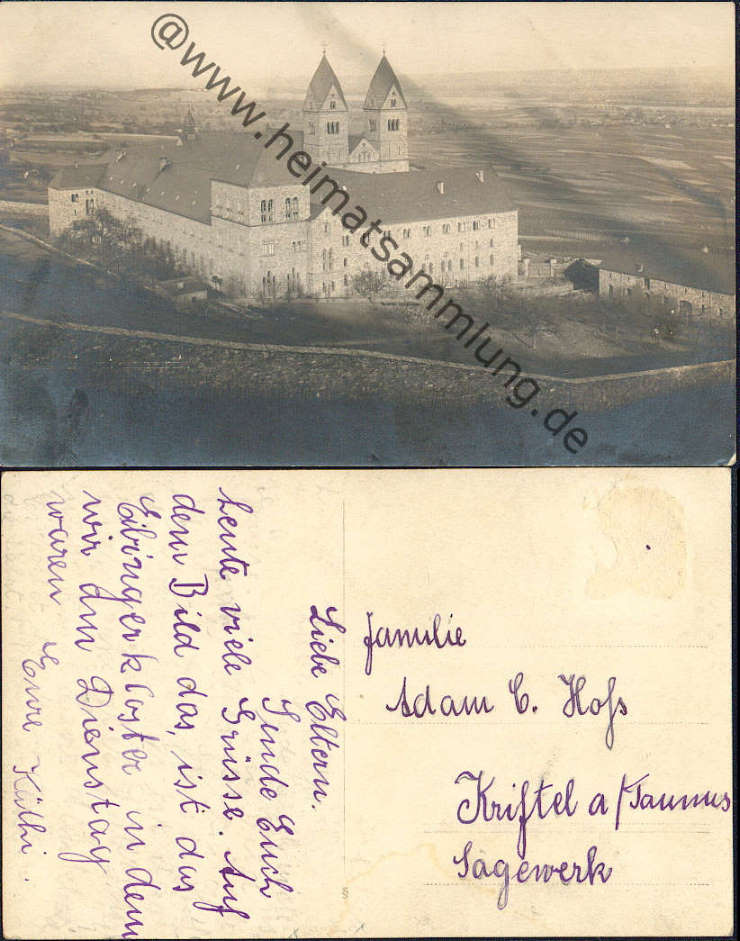 @www.heimatsammlung.de
Liebe Eltern.
Sende Euch
heute viele Grüsse. Auf
dem Bild das, ist das
Eibingerkloster in dem
wir am Dienstag
waren Eure Käthi.
Familie
Adam C. Hofs
Kriftel a/Taunus
Sagewerk